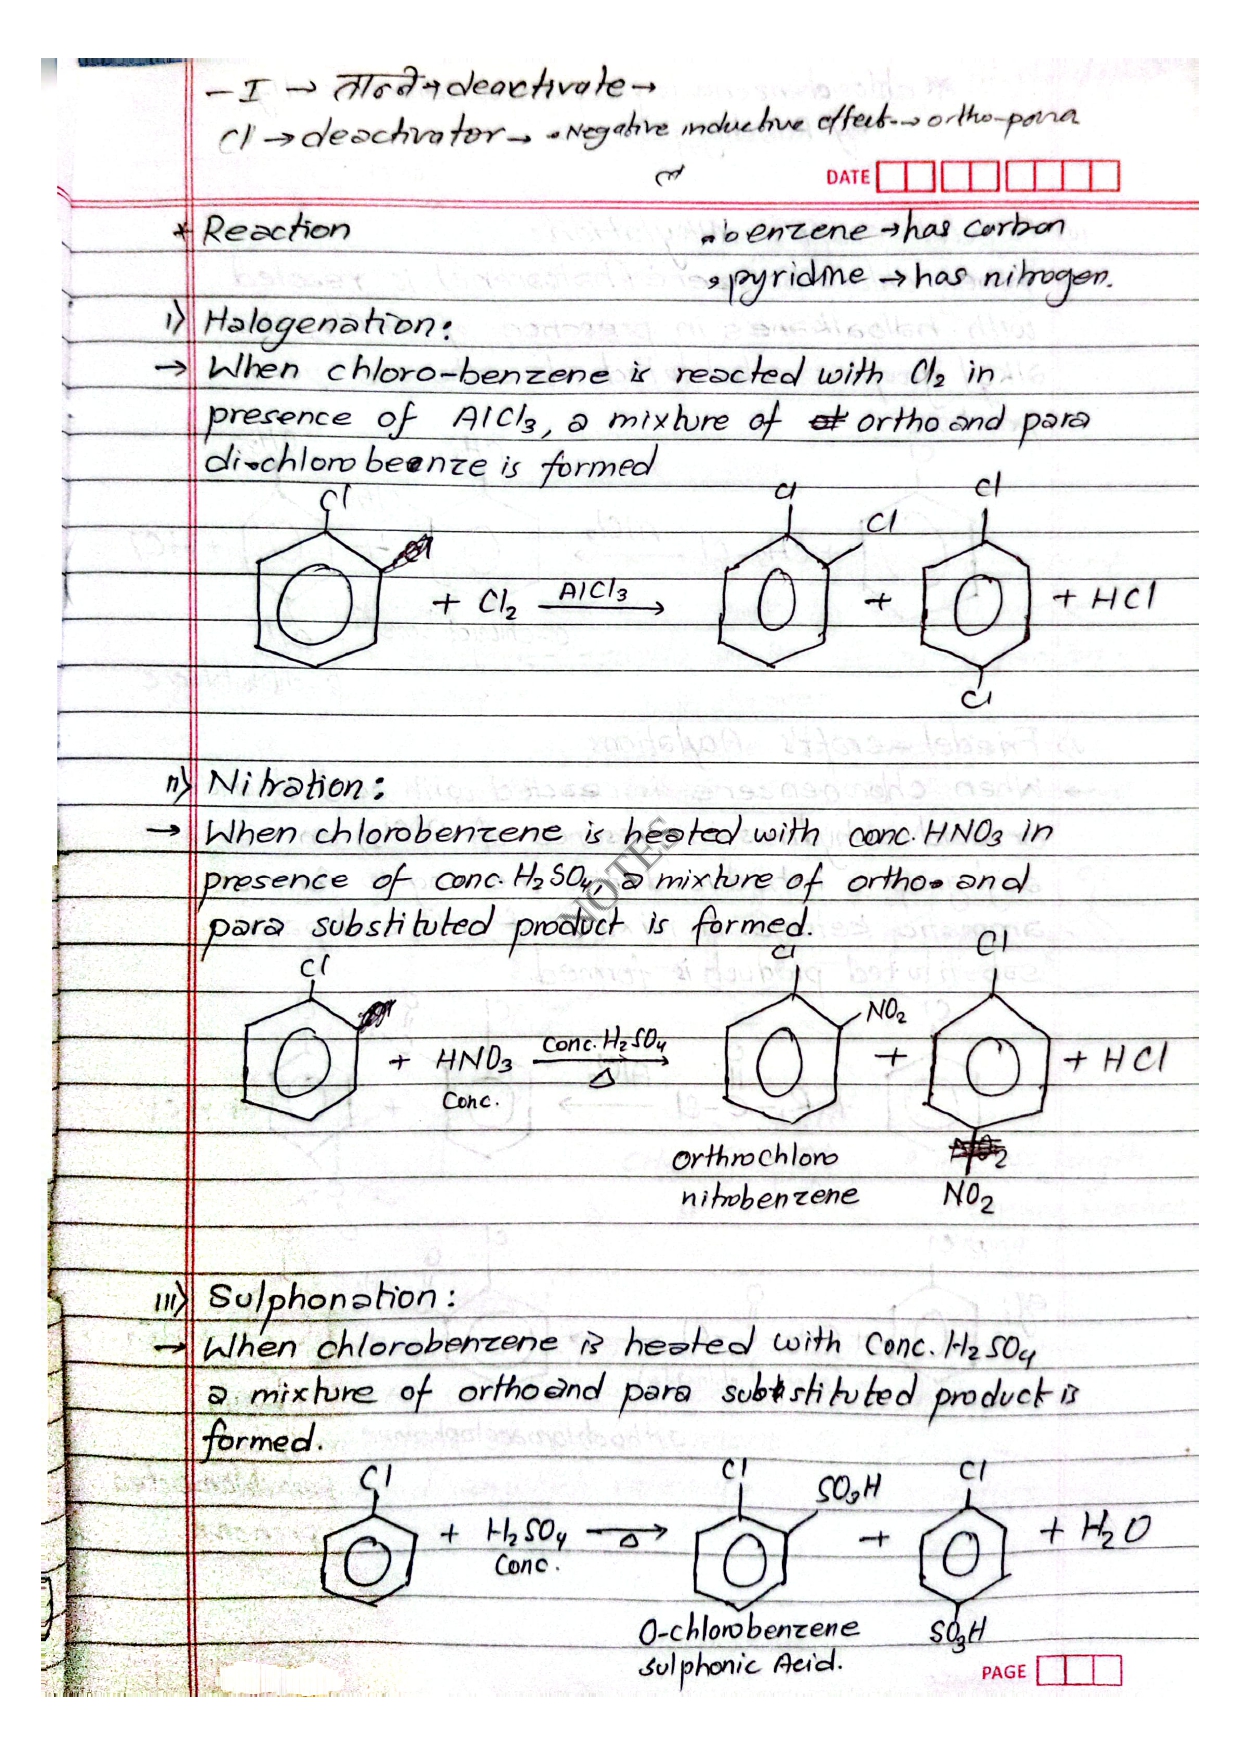 - I → तान्ने → deactivate →
Cl → deactivator → • Negative inductive effect → ortho-para
DATE
* Reaction
• benzene → has carbon
• pyridine → has nitrogen.
i) Halogenation:
→ When chloro-benzene is reacted with Cl2 in
presence of AlCl3, a mixture of ortho and para
di-chloro beenze is formed
Cl Cl Cl Cl
+ Cl2 AlCl3 → + + HCl
Cl
ii) Nitration:
→ When chlorobenzene is heated with conc. HNO3 in
presence of conc. H2SO4, a mixture of ortho and
para substituted product is formed.
NOTES
Cl Cl Cl
NO2
+ HNO3 Conc. H2SO4 → + + HCl
Conc. Δ
orthrochloro
nitrobenzene NO2
iii) Sulphonation:
→ When chlorobenzene is heated with Conc. H2SO4
a mixture of ortho and para substituted product is
formed.
Cl Cl SO3H Cl
+ H2SO4 → + + H2O
Conc. Δ
O-chlorobenzene SO3H
sulphonic Acid.
PAGE